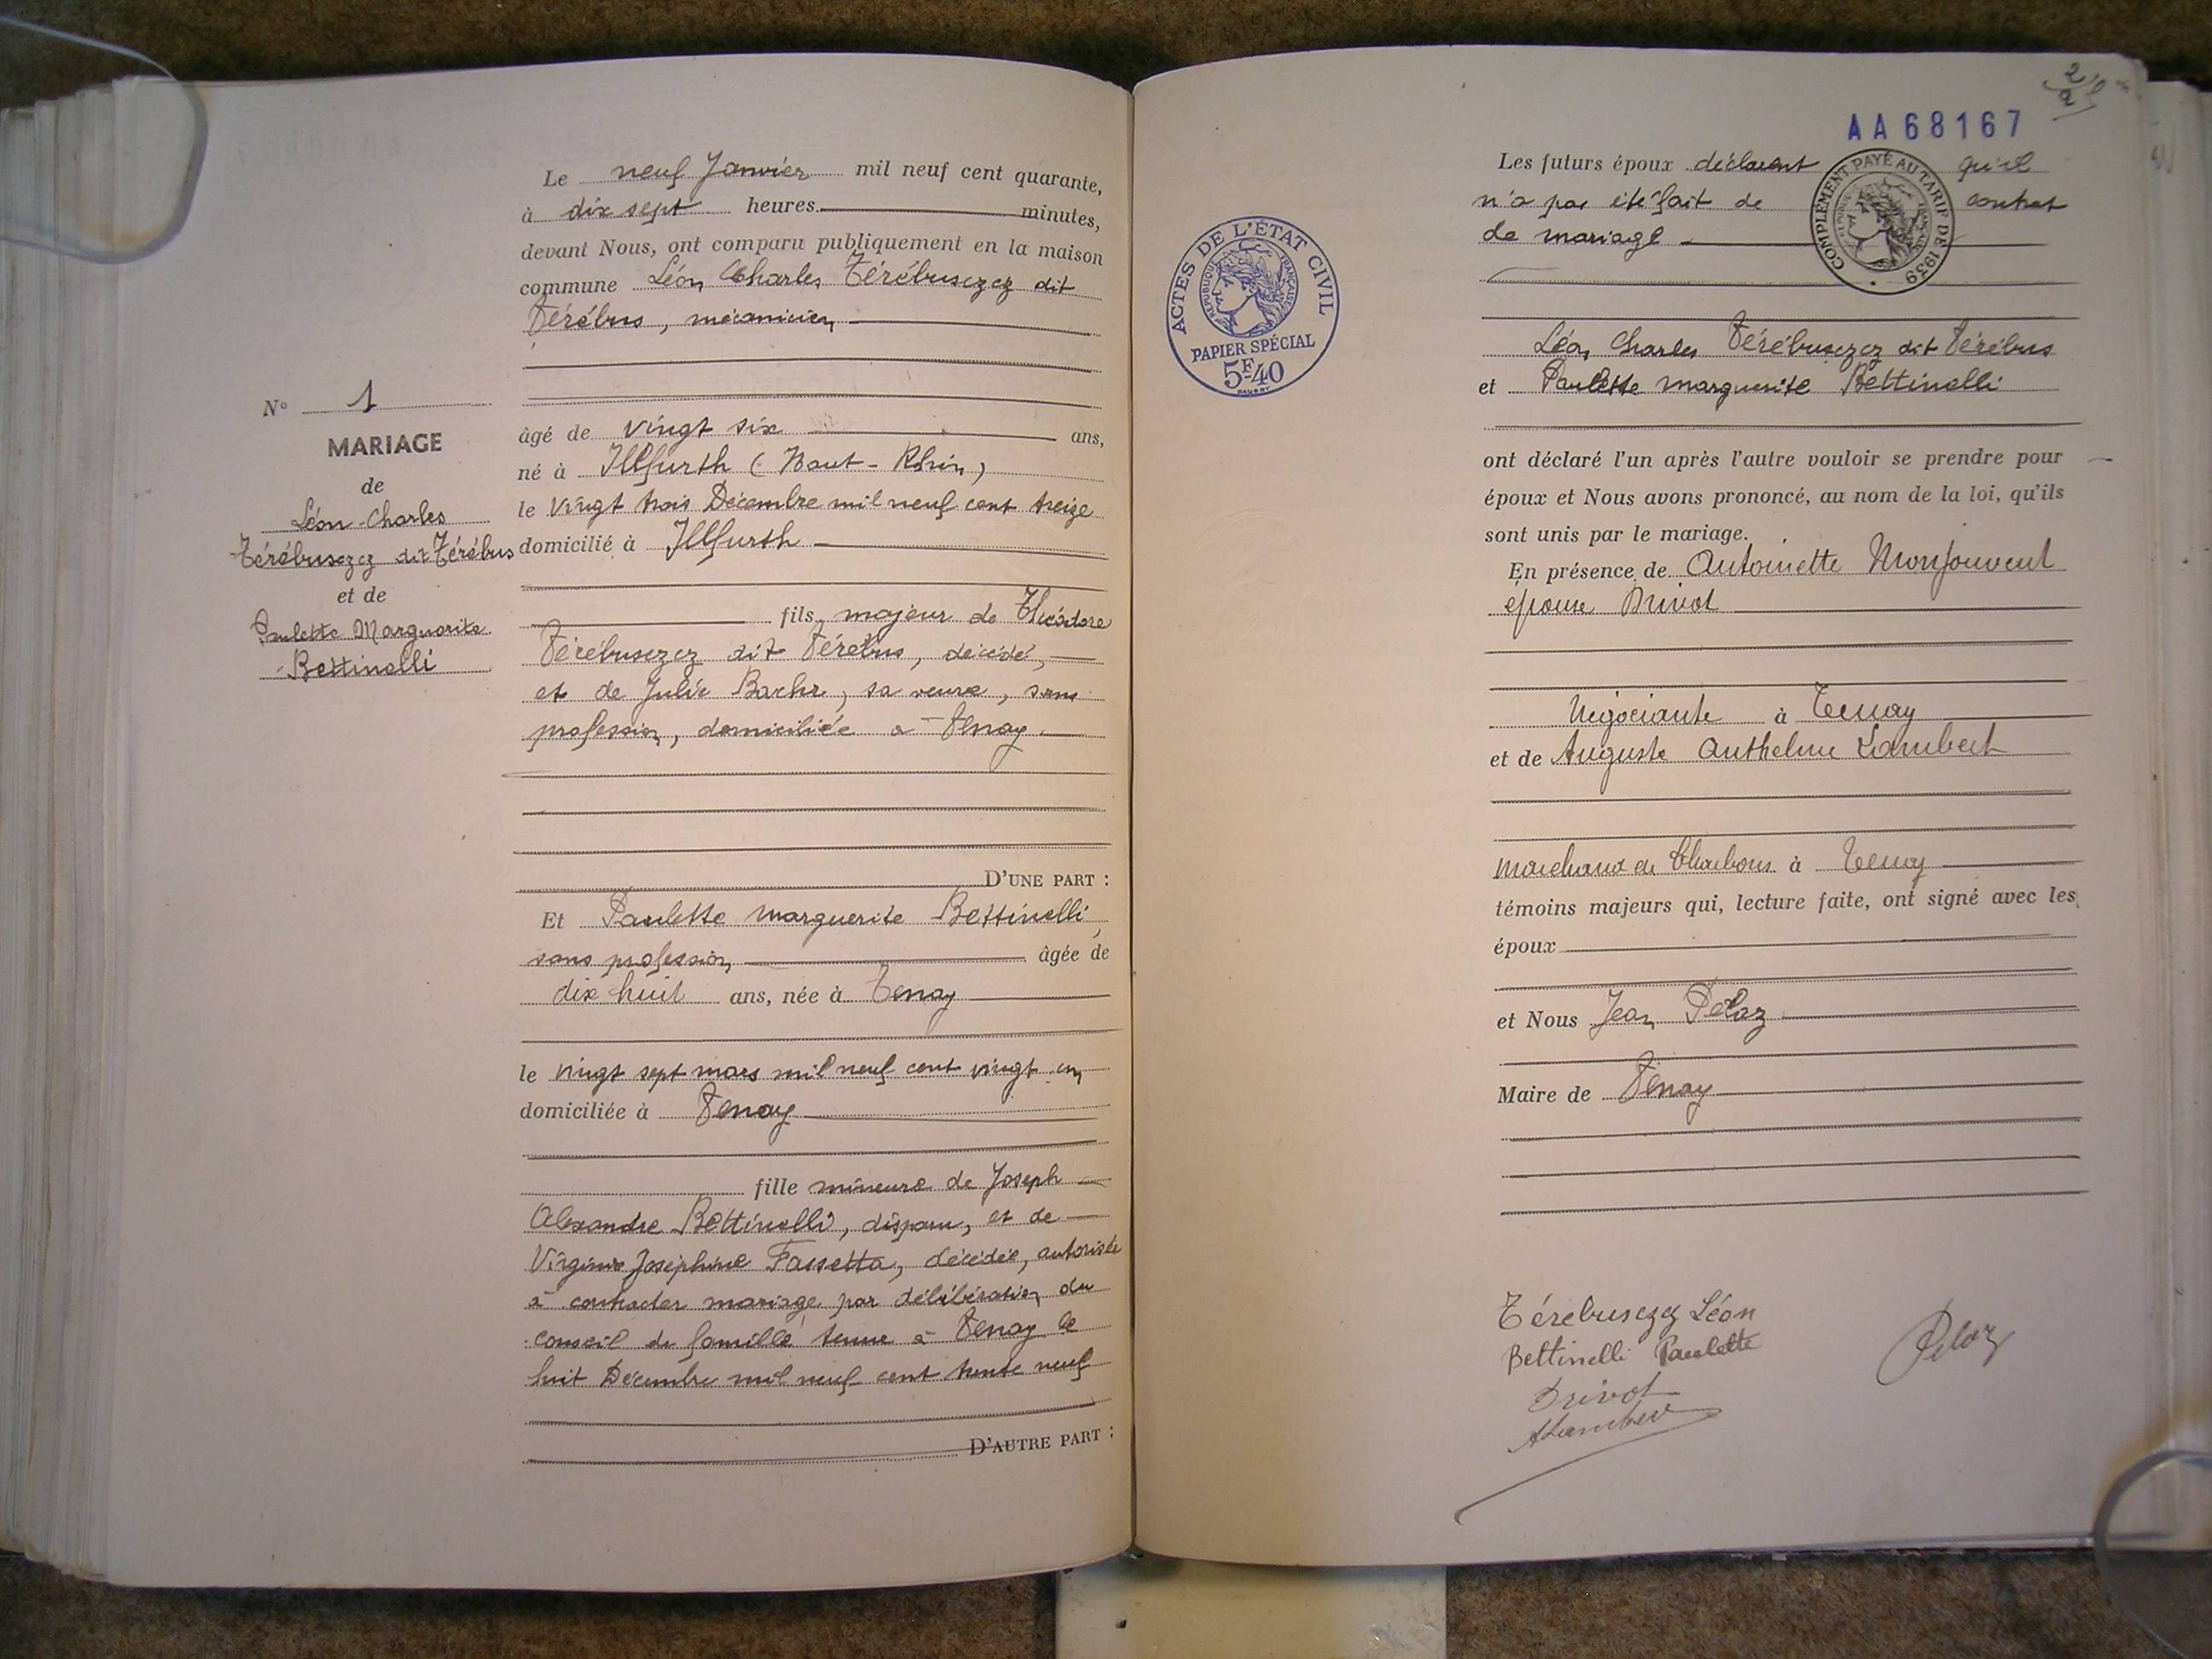 Le neuf Janvier mil neuf cent quarante,
à dix sept heures minutes,
devant Nous, ont comparu publiquement en la maison
commune Léon Charles Térébusczez dit
Térébus, mécanicien
N° 1
MARIAGE
de
Léon-Charles
Térébusczez dit Térébus
et de
Paulette Marguerite
Bettinelli
âgé de vingt six ans,
né à Illfurth (Haut-Rhin)
le vingt trois Décembre mil neuf cent treize
domicilié à Illfurth
fils majeur de Théodore
Térébusczez dit Térébus, décédé,
et de Julie Baehr, sa veuve, sans
profession, domiciliée à Tenay.
D'UNE PART :
Et Paulette Marguerite Bettinelli,
sans profession, âgée de
dix huit ans, née à Tenay
le vingt sept mars mil neuf cent vingt un
domiciliée à Tenay
fille mineure de Joseph
Alexandre Bettinelli, disparu, et de
Virginie Joséphine Fassetta, décédée, autorisée
à contracter mariage par délibération du
conseil de famille tenue à Tenay le
huit Décembre mil neuf cent trente neuf
D'AUTRE PART :
AA68167
Les futurs époux déclarent qu'il
n'a pas été fait de contrat
de mariage
COMPLÉMENT PAYÉ AU TARIF DE 1939
ACTES DE L'ÉTAT CIVIL
RÉPUBLIQUE FRANÇAISE
PAPIER SPÉCIAL
5F40
Léon Charles Térébusczez dit Térébus
et Paulette Marguerite Bettinelli
ont déclaré l'un après l'autre vouloir se prendre pour
époux et Nous avons prononcé, au nom de la loi, qu'ils
sont unis par le mariage.
En présence de Antoinette Monfouveut
épouse Drivot
Négociante à Tenay
et de Auguste Anthelme Lambert
marchand de Charbons à Tenay
témoins majeurs qui, lecture faite, ont signé avec les
époux
et Nous Jean Pélaz
Maire de Tenay
Térébusczez Léon
Bettinelli Paulette
Pelaz
Drivot
ALambert